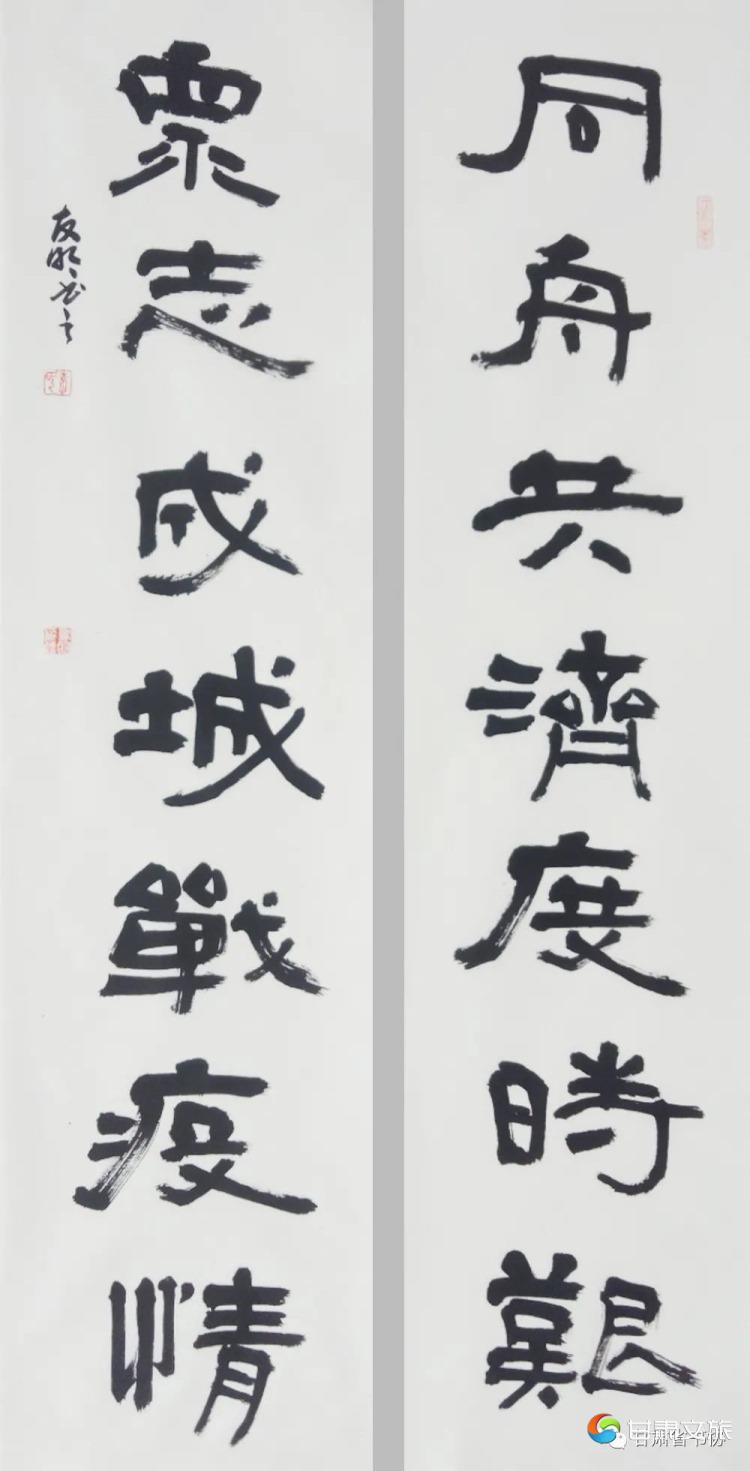 同舟共濟度時艱
衆志成城戰疫情
友明书之
甘肃文旅
甘肃省书协